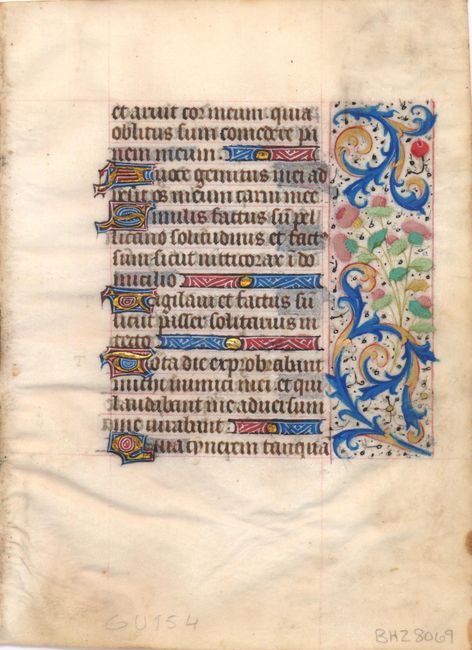 et aruit cor meum quia
oblitus sum comedere pa
nem meum
A uoce gemitus mei ad
hesit os meum carni mee
Similis factus sū pel
licano solitudinis et fact
sum sicut nitticorax ī do
micilio
Vigilaui et factus sū
sicut passer solitarius in
tecto
Tota die exprobrabant
michi inimici mei et qui
laudabant me aduersum
me iurabant
Quia cynerem tanquā
GU154
BHZ8069